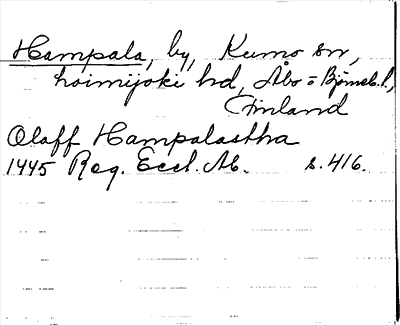 Hampala, by, Kumo sn,
Loimijoki hd, Åbo o Björneb. l.,
Finland
Olaff Hampalastha
1445 Reg. Eccl. Ab. s. 416.